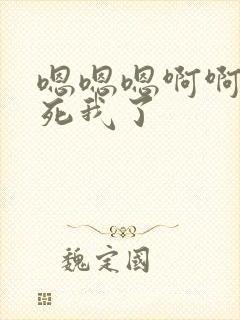 嗯嗯嗯啊啊
死我了
魏定國